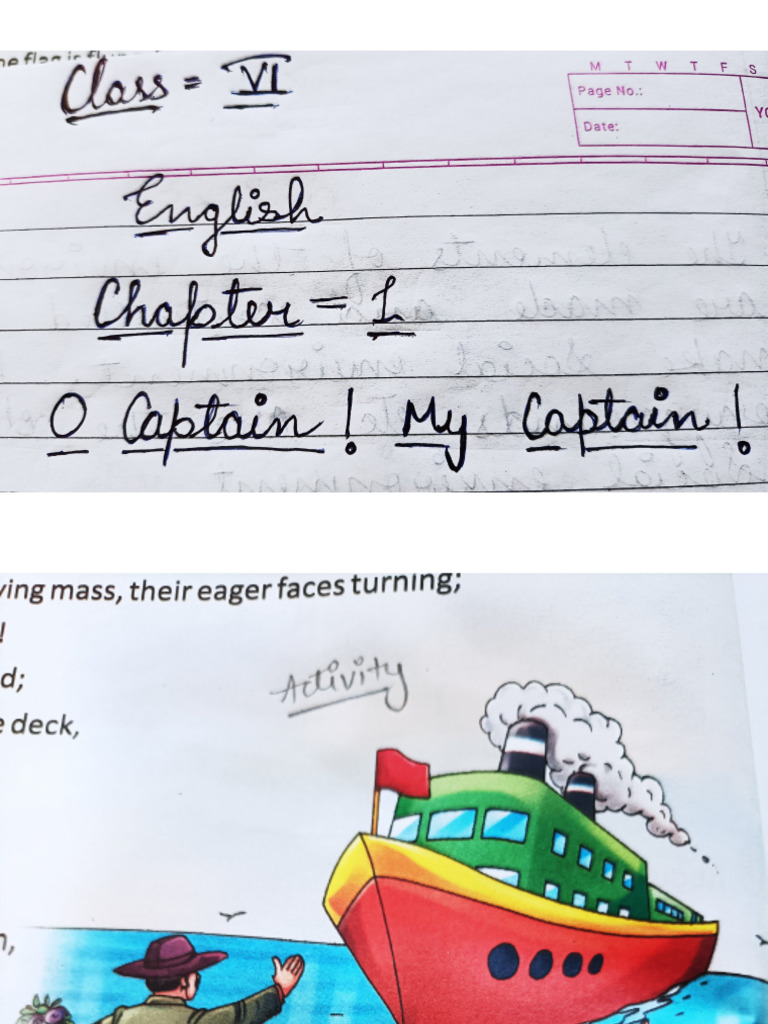 Class = VI
M T W T F S
Page No.:
Date:
English
Chapter = 1
O Captain! My Captain!
ying mass, their eager faces turning;
!
d;
Activity
e deck,